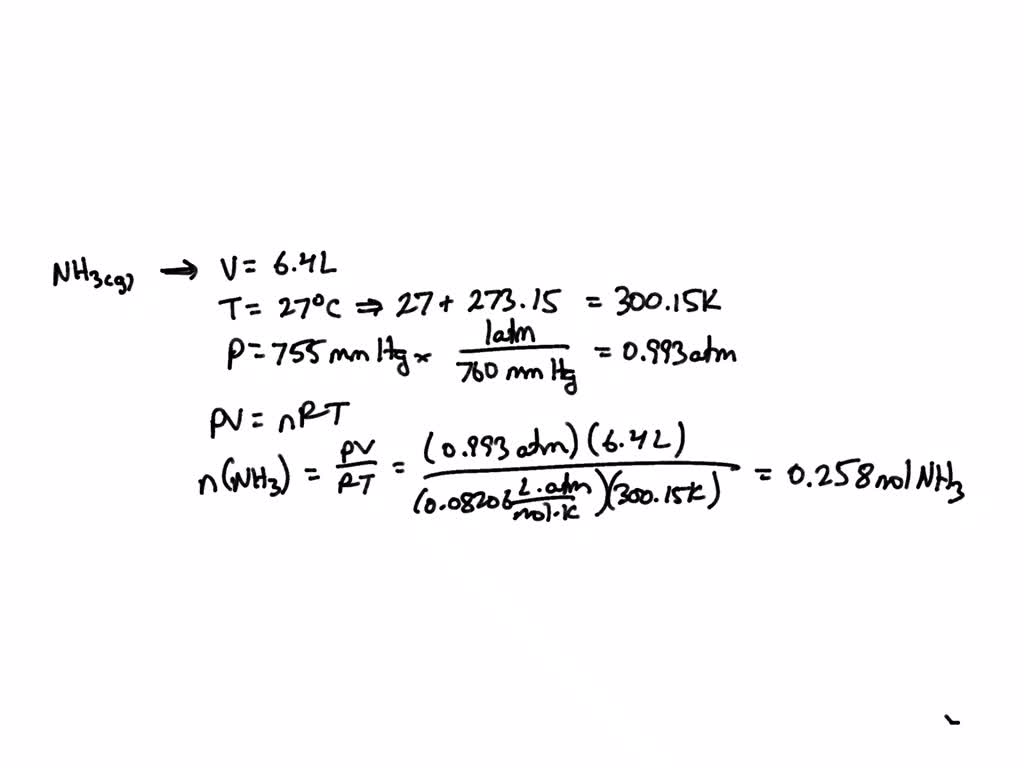 NH₃(g) → V = 6.4L
T = 27°C ⇒ 27 + 273.15 = 300.15K
P = 755 mm Hg × 1atm / 760 mm Hg = 0.993 atm
PV = nRT
n(NH₃) = PV / RT = (0.993 atm)(6.4L) / (0.08206 L.atm / mol.K)(300.15K) = 0.258 mol NH₃